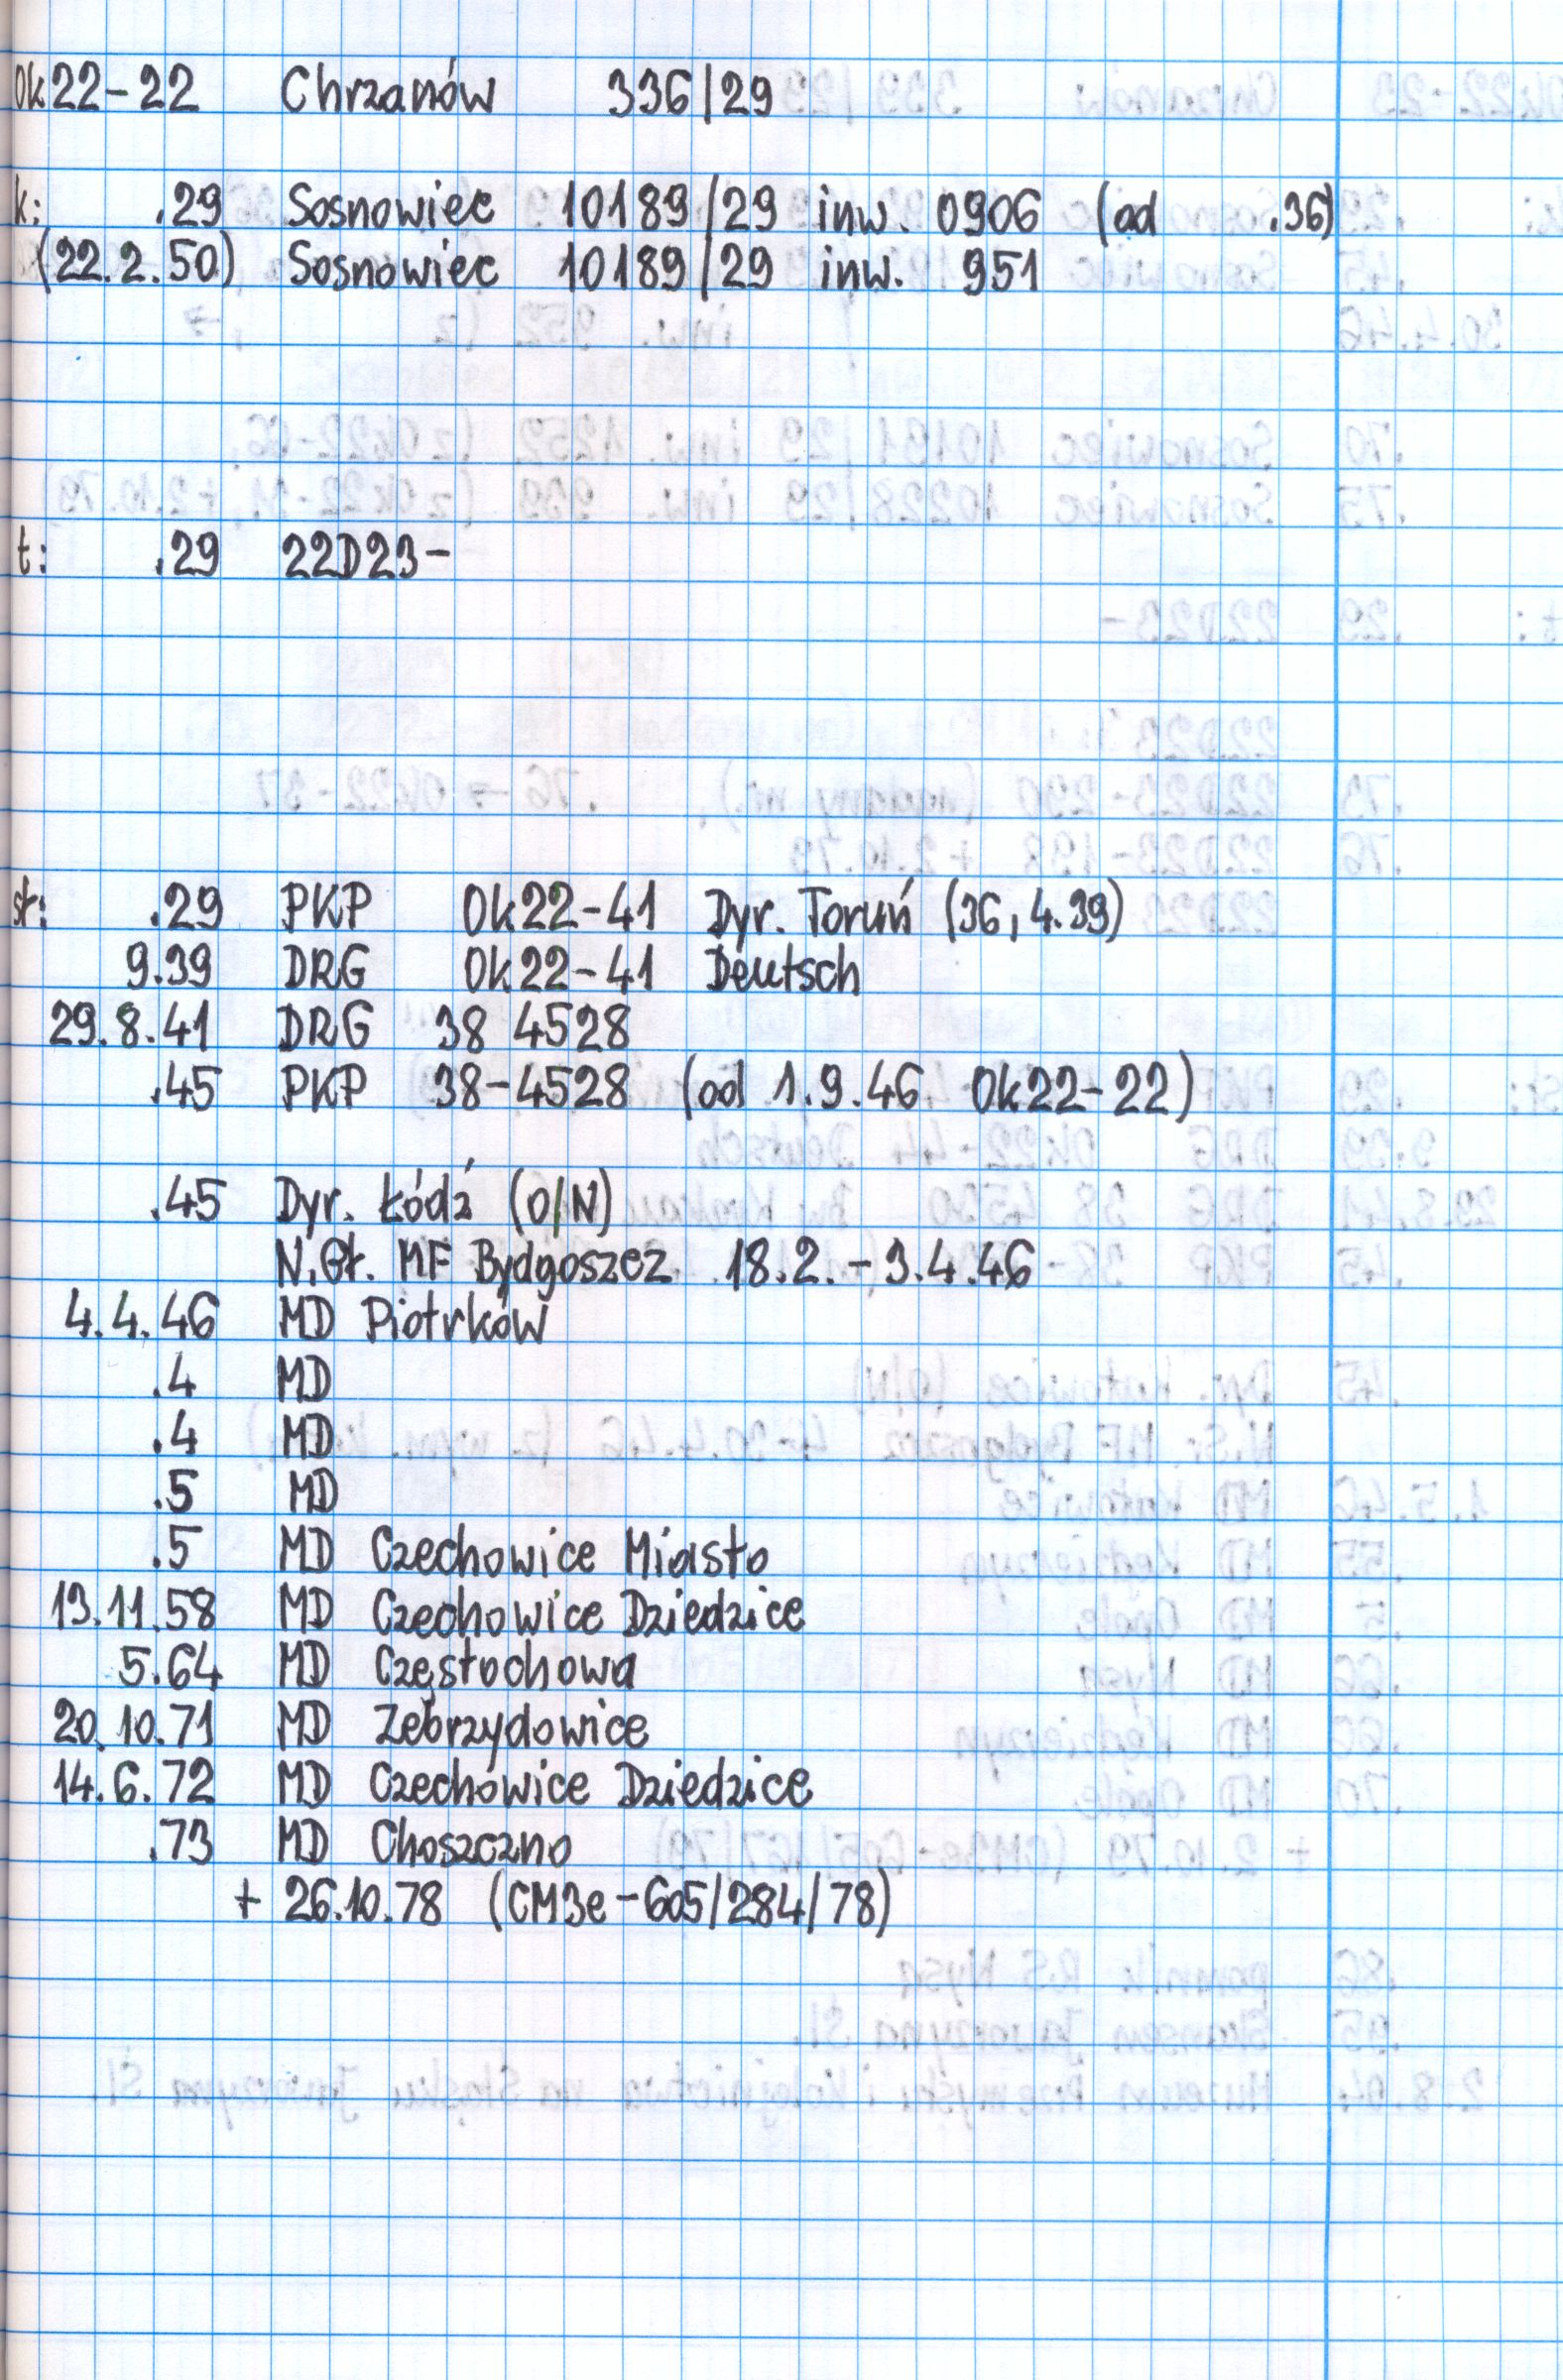 Ok22-22 Chrzanów 336/29
k: .29 Sosnowiec 10189/29 inw. 0906 (od .36)
(22.2.50) Sosnowiec 10189/29 inw. 951
t: .29 22D23-
st: .29 PKP Ok22-41 Dyr. Toruń (36, 4.39)
9.39 DRG Ok22-41 Deutsch
29.8.41 DRG 38 4528
.45 PKP 38-4528 (od 1.9.46 Ok22-22)
.45 Dyr. Łódź (O/N)
N.Gł. MF Bydgoszcz 18.2.-3.4.46
4.4.46 MD Piotrków
.4 MD
.4 MD
.5 MD
.5 MD Czechowice Miasto
13.11.58 MD Czechowice Dziedzice
5.64 MD Częstochowa
20.10.71 MD Zebrzydowice
14.6.72 MD Czechowice Dziedzice
.73 MD Choszczno
+ 26.10.78 (CM3e-605/284/78)